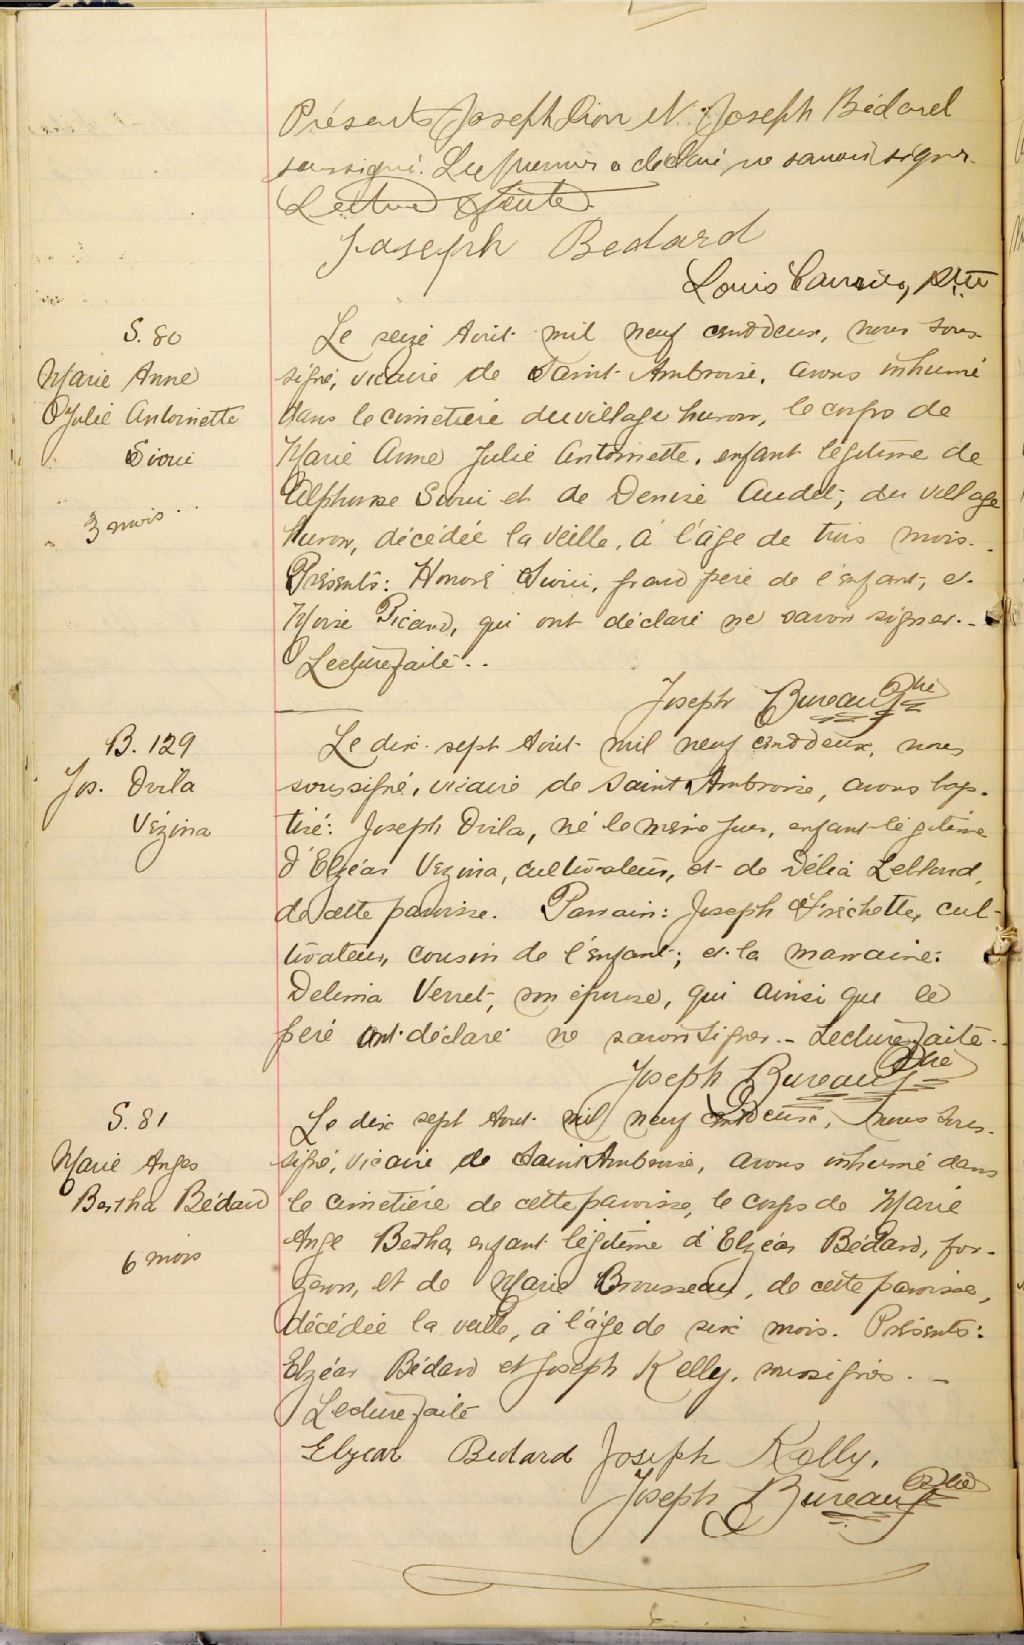 Présents Joseph Dion et Joseph Bédard
soussigné. Le premier a déclaré ne savoir signer.
Lecture faite
Joseph Bedard
Louis ptre
S. 80
Marie Anne
Julie Antoinette
Sioui
3 mois
Le seize Août mil neuf cent deux, nous sous-
signé, vicaire de Saint Ambroise, avons inhumé
dans le cimetière du village huron, le corps de
Marie Anne Julie Antoinette, enfant légitime de
Alphonse Sioui et de Denise Audet, du village
huron, décédée la veille, à l'âge de trois mois.
Présents: Honoré Sioui, grand père de l'enfant, et
Moïse Picard, qui ont déclaré ne savoir signer.-
Lecture faite..
Joseph Bureau Ptre
B. 129
Jos. Ovila
Vézina
Le dix-sept Août mil neuf cent deux, nous
soussigné, vicaire de Saint Ambroise, avons bap-
tisé: Joseph Ovila, né le même jour, enfant légitime
d'Elzéar Vézina, cultivateur, et de Délia Leblond,
de cette paroisse. Parrain: Joseph Fréchette, cul-
tivateur, cousin de l'enfant; et la marraine:
Delima Verret, son épouse, qui ainsi que le
père ont déclaré ne savoir signer.- Lecture faite.
Joseph Bureau Ptre
S. 81
Marie Ange
Bertha Bédard
6 mois
Le dix sept Août mil neuf cent deux, nous sous-
signé, vicaire de Saint Ambroise, avons inhumé dans
le cimetière de cette paroisse, le corps de Marie
Ange Bertha, enfant légitime d'Elzéar Bédard, for-
geron, et de Marie Brousseau, de cette paroisse,
décédée la veille, à l'âge de six mois. Présents:
Elzéar Bédard et Joseph Kelly, soussignés. -
Lecture faite
Elzear Bedard Joseph Kelly.
Joseph Bureau Ptre